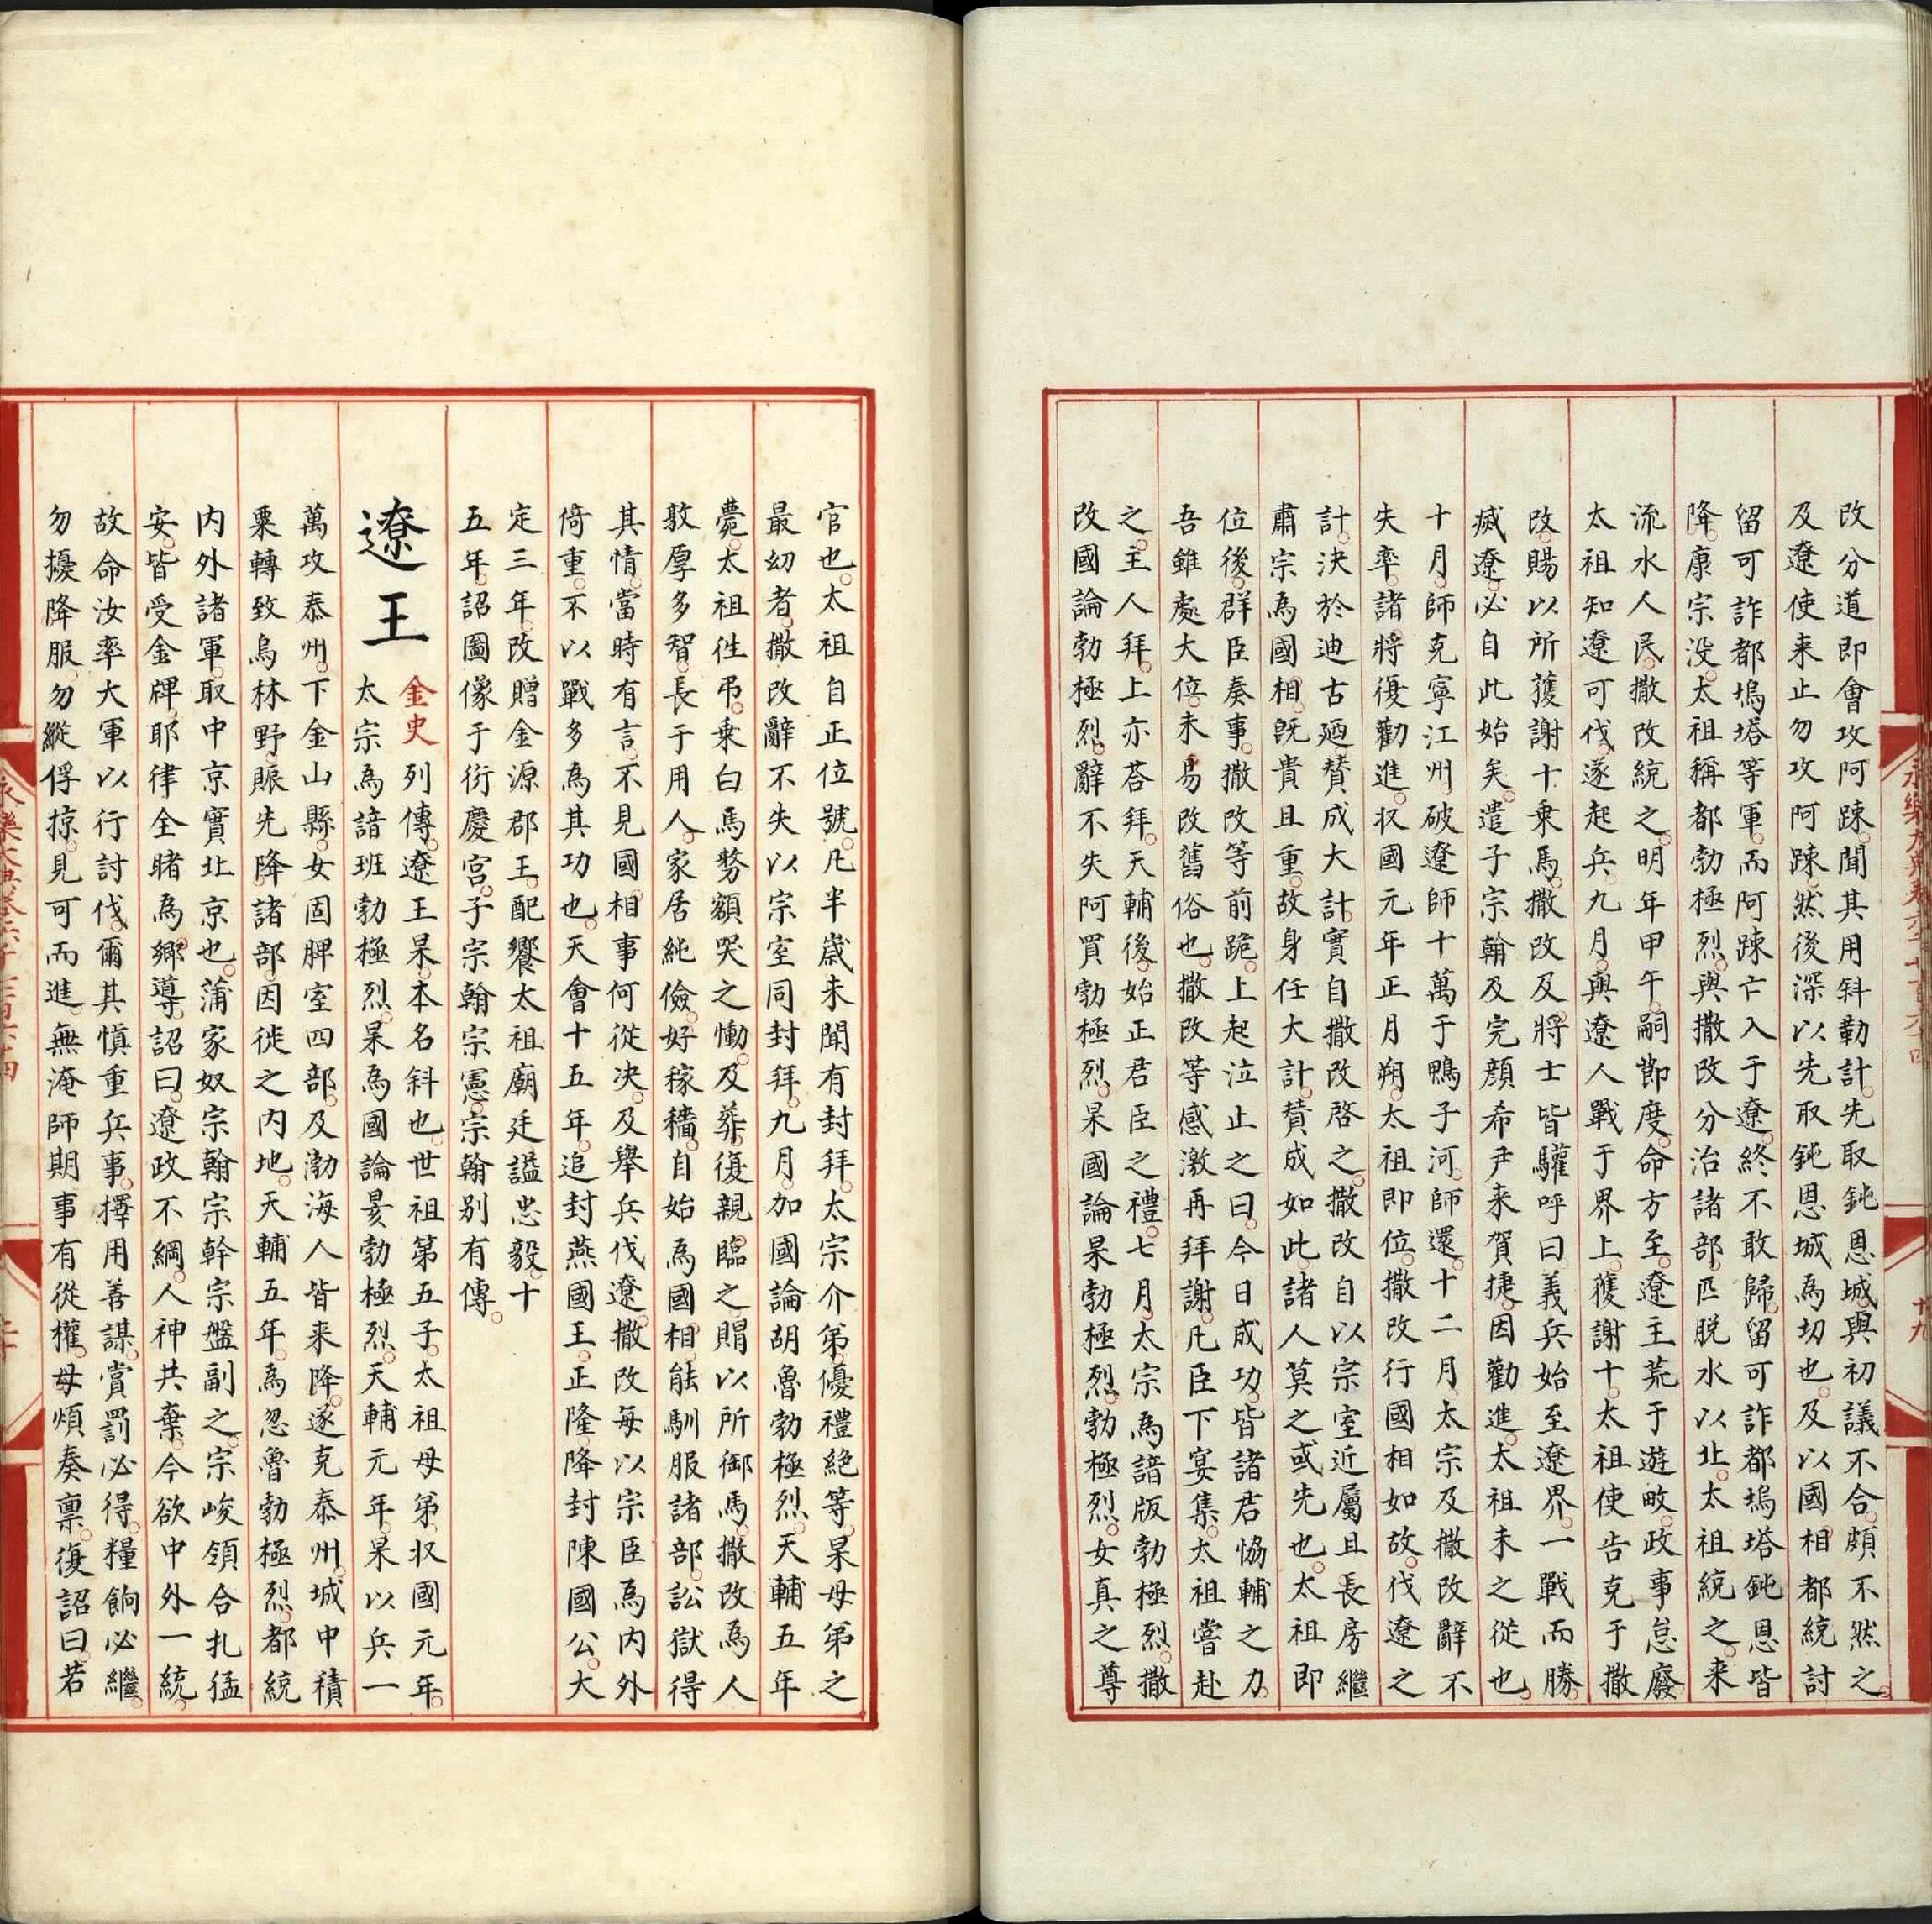 改分道即會攻阿踈聞其用斜勒計先取鈍恩城與初議不合頗不然之
及遼使来止勿攻阿踈然後深以先取鈍恩城為切也及以國相都統討
留可詐都塢塔等軍而阿踈亡入于遼終不敢歸留可詐都塢塔鈍恩皆
降康宗没太祖稱都勃極烈與撒改分治諸部匹脱水以北太祖統之来
流水人民撒改統之明年甲午嗣節度命方至遼主荒于遊畋政事怠廢
太祖知遼可伐遂起兵九月與遼人戰于界上獲謝十太祖使告克于撒
改賜以所獲謝十乗馬撒改及將士皆驩呼曰義兵始至遼界一戰而勝
滅遼必自此始矣遣子宗翰及完顔希尹来賀捷因勸進太祖未之従也
十月師克寧江州破遼師十萬于鴨子河師還十二月太宗及撒改辭不
失率諸將復勸進収國元年正月朔太祖即位撒改行國相如故伐遼之
計決於迪古廼賛成大計實自撒改啓之撒改自以宗室近屬且長房繼
肅宗為國相既貴且重故身任大計賛成如此諸人莫之或先也太祖即
位後群臣奏事撒改等前跪上起泣止之曰今日成功皆諸君恊輔之力
吾雖處大位未易改舊俗也撒改等感激再拜謝凡臣下宴集太祖嘗赴
之主人拜上亦荅拜天輔後始正君臣之禮七月太宗為諳版勃極烈撒
改國論勃極烈辭不失阿買勃極烈杲國論杲勃極烈勃極烈女真之尊
官也太祖自正位號凡半歲未聞有封拜太宗介弟優禮絶等杲母弟之
最幼者撒改辭不失以宗室同封拜九月加國論胡魯勃極烈天輔五年
薨太祖徃弔乗白馬剺額哭之慟及葬復親臨之賵以所御馬撒改為人
敦厚多智長于用人家居純儉好稼穡自始為國相能馴服諸部訟獄得
其情當時有言不見國相事何從决及舉兵伐遼撒改每以宗臣為内外
倚重不以戰多為其功也天會十五年追封燕國王正隆降封陳國公大
定三年改贈金源郡王配饗太祖廟廷諡忠毅十
五年詔圖像于衍慶宫子宗翰宗憲宗翰别有傳
遼王
金史列傳遼王杲本名斜也世祖第五子太祖母弟収國元年
太宗為諳班勃極烈杲為國論昃勃極烈天輔元年杲以兵一
萬攻泰州下金山縣女固脾室四部及渤海人皆来降遂克泰州城中積
粟轉致烏林野賑先降諸部因徙之内地天輔五年為忽魯勃極烈都統
内外諸軍取中京實北京也蒲家奴宗翰宗幹宗盤副之宗峻領合扎猛
安皆受金牌耶律余睹為鄉導詔曰遼政不綱人神共棄今欲中外一統
故命汝率大軍以行討伐爾其慎重兵事擇用善謀賞罰必得糧餉必繼
勿擾降服勿縱俘掠見可而進無淹師期事有從權毋煩奏禀復詔曰若